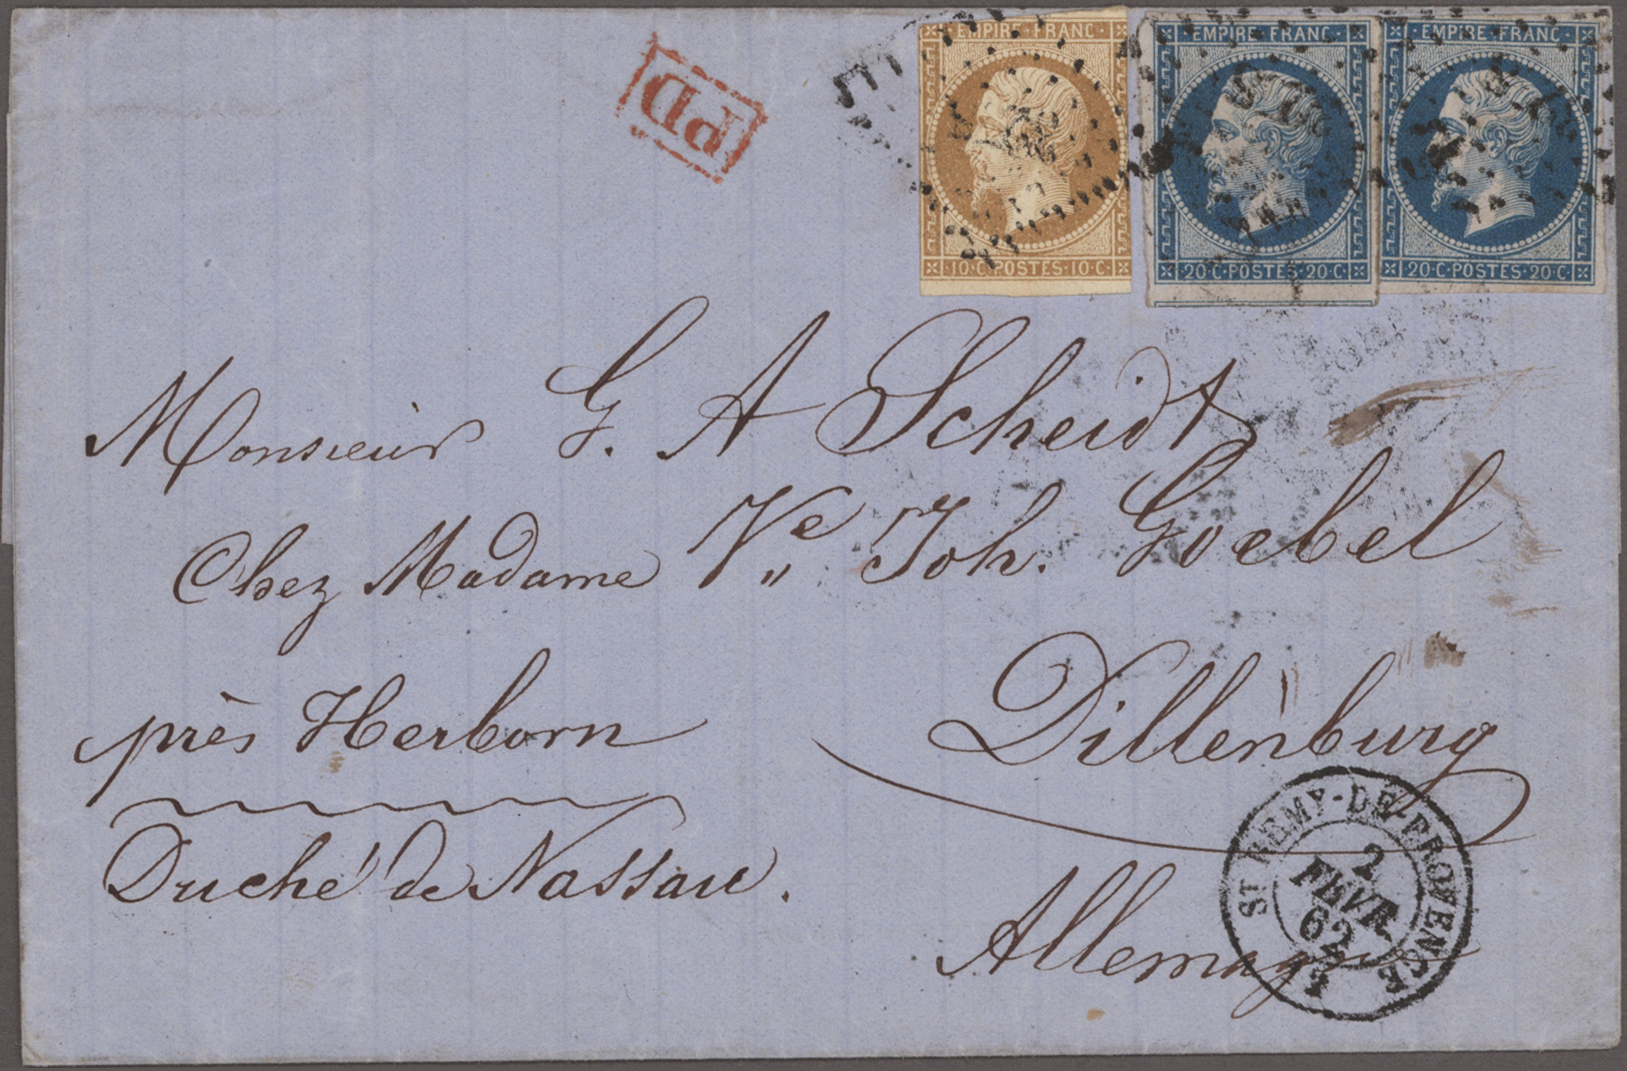 PD
EMPIRE FRANC
10·C·POSTES·10·C·
EMPIRE·FRANC·
20·C·POSTES·20·C·
EMPIRE·FRANC·
20·C·POSTES·20·C·
Monsieur G. A Scheidt
Chez Madame Ve Joh. Goebel
Dillenburg
près Herborn
Duché de Nassau.
Allemagne
ST REMY-DE-PROVENCE
2
FEVR.
62